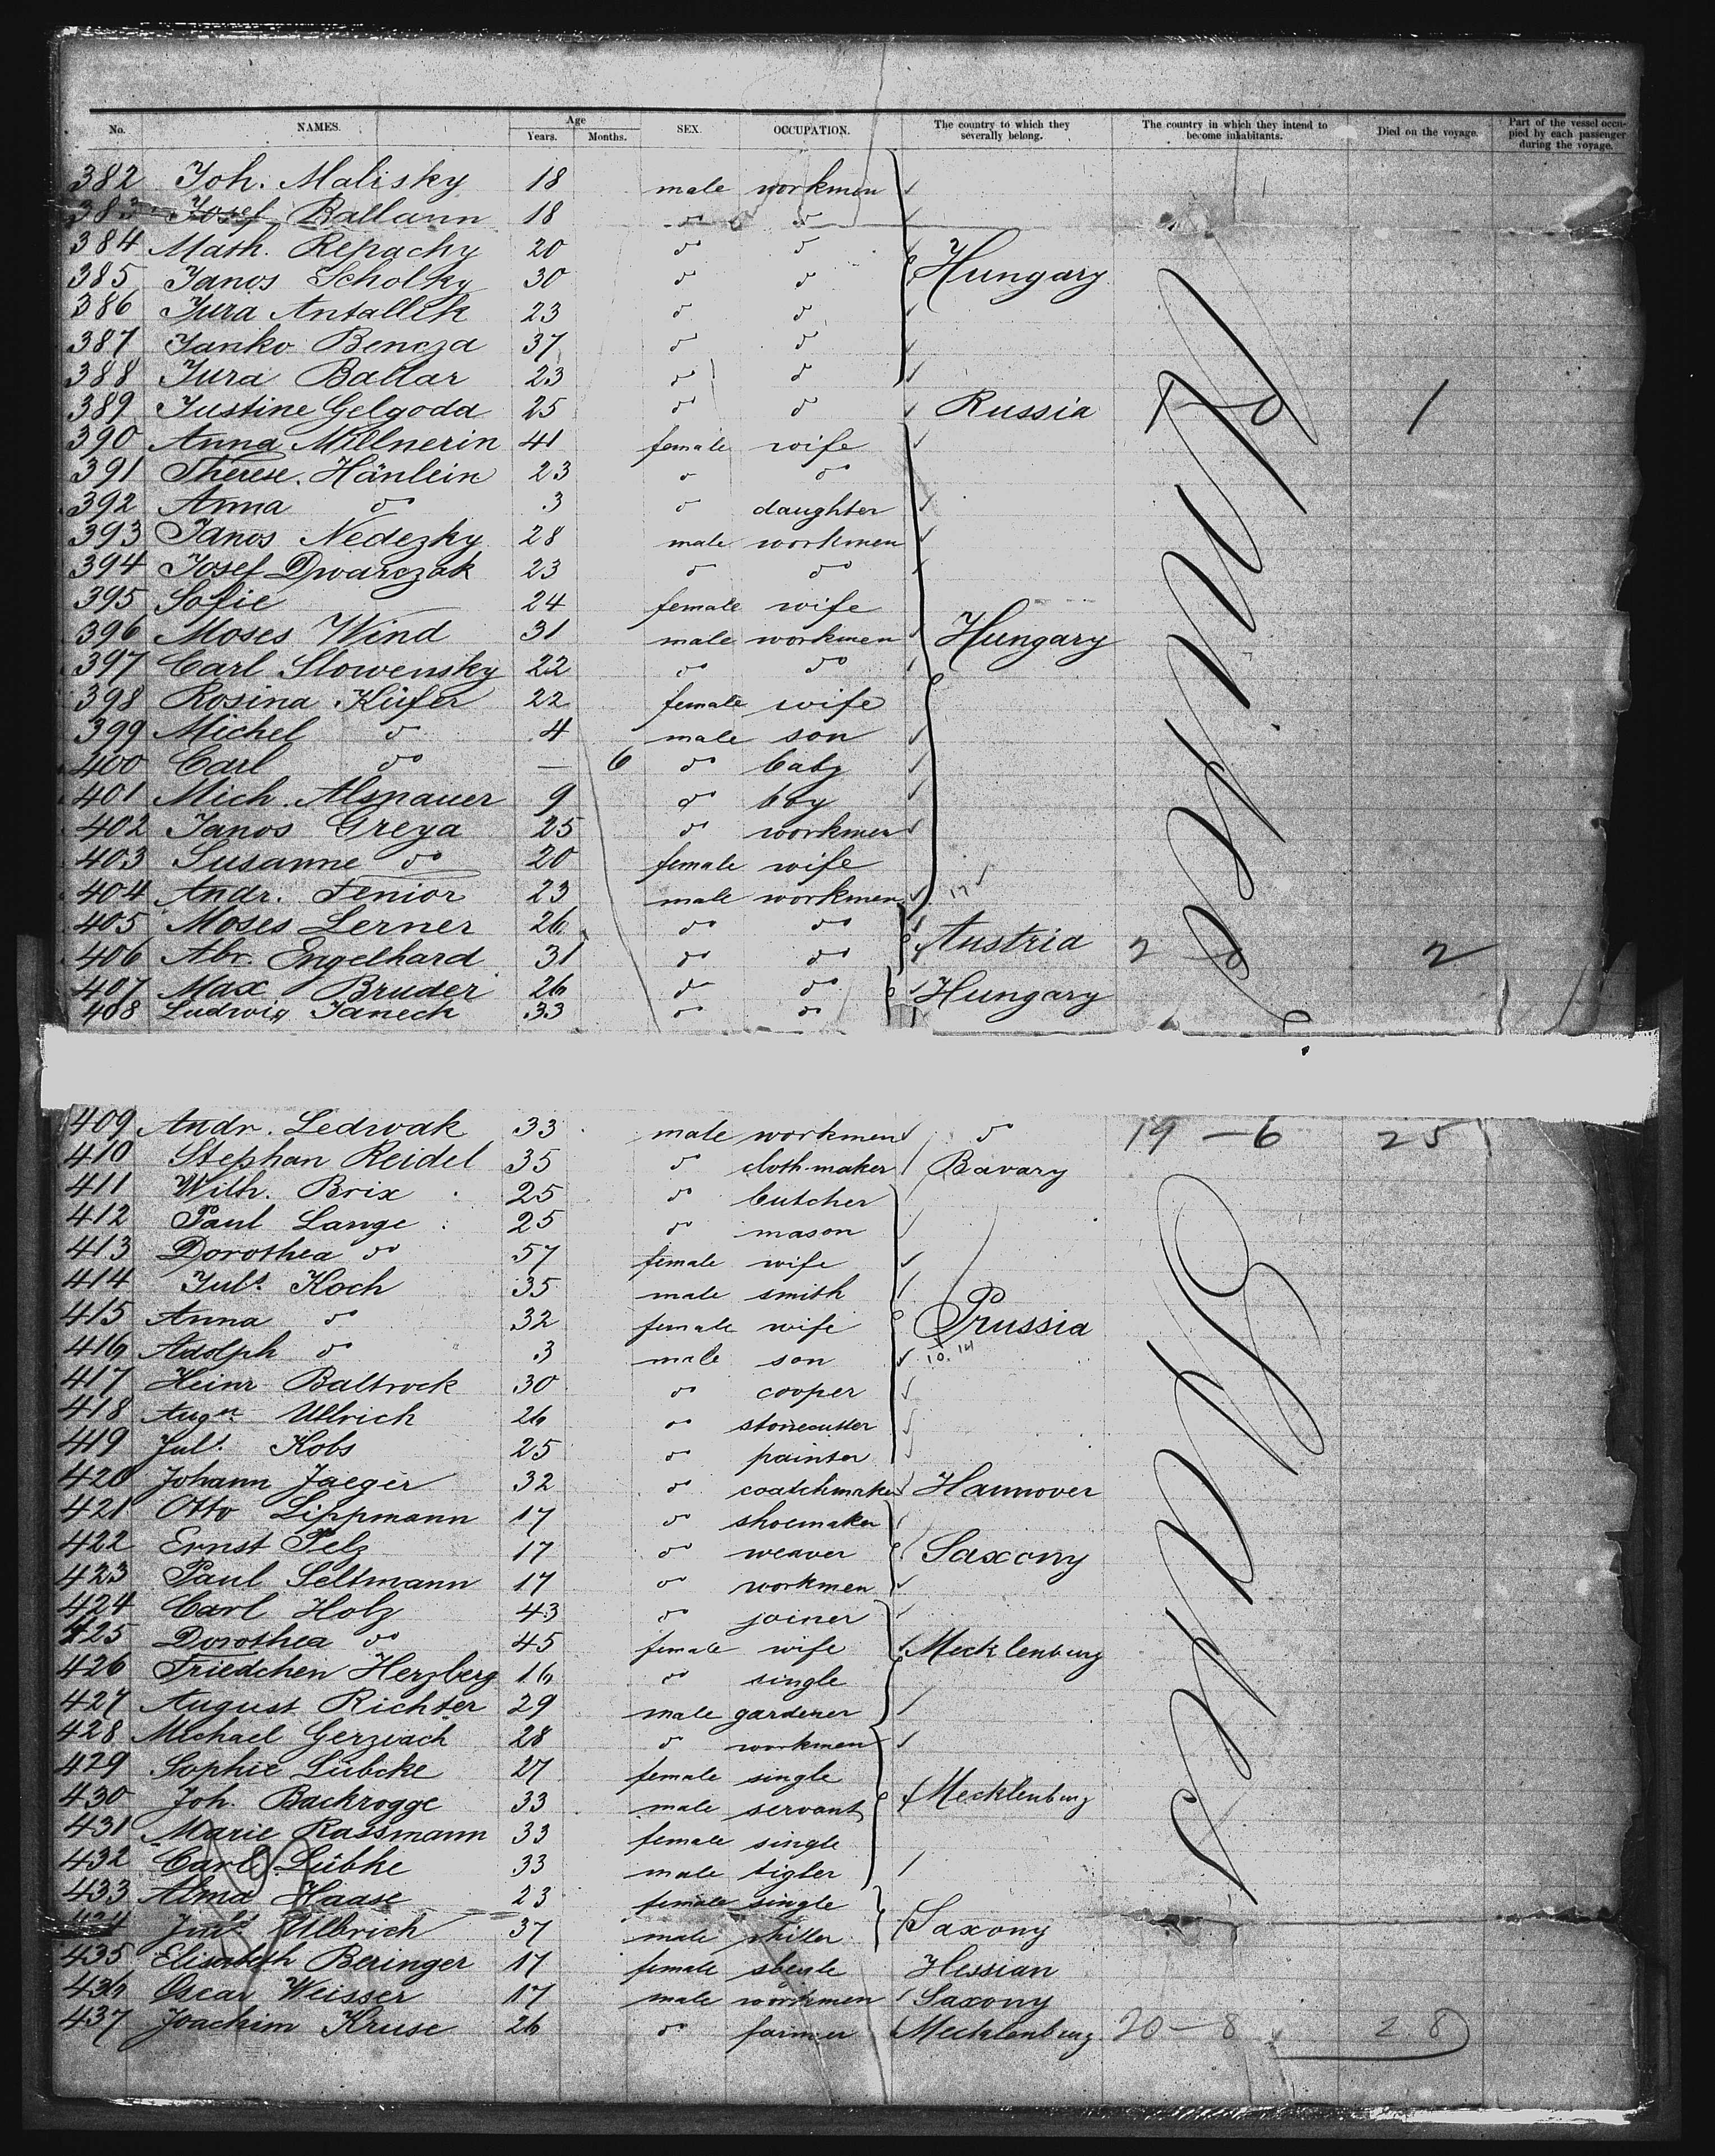 No. NAMES. Age Years. Months. SEX. OCCUPATION. The country to which they severally belong. The country in which they intend to become inhabitants. Died on the voyage. Part of the vessel occupied by each passenger during the voyage.
382 Joh. Malisky 18 male workmen
383 Josef Ballann 18 do do
384 Math. Repachy 20 do do Hungary
385 Janos Scholky 30 do do
386 Jura Antallik 23 do do
387 Janko Bencza 37 do do
388 Jura Ballar 23 do do
389 Justine Gelgoda 25 do do Russia 1
390 Anna Millnerin 41 female wife
391 Therese Hänlein 23 do do
392 Anna do 3 do daughter
393 Janos Nedezky 28 male workmen
394 Josef Dwarczak 23 do do
395 Sofie 24 female wife
396 Moses Wind 31 male workmen Hungary
397 Carl Slowensky 22 do do
398 Rosina Küfer 22 female wife
399 Michel do 4 male son
400 Carl do — 6 do baby
401 Mich. Alspauer 9 do boy
402 Janos Greya 25 do workmen
403 Susanne do 20 female wife
404 Andr. Fenior 23 male workmen 17
405 Moses Lerner 26 do do
406 Abr. Engelhard 31 do do Austria 2 2
407 Max Bruder 26 do do Hungary
408 Ludwig Janech 33 do do
409 Andr. Ledwak 33 male workmen do 19 - 6 25
410 Stephan Reidel 35 do cloth-maker Bavary
411 Wilh. Brix 25 do butcher
412 Paul Lange 25 do mason
413 Dorothea do 57 female wife
414 Juls. Koch 35 male smith
415 Anna do 32 female wife Prussia
416 Adolph do 3 male son 10. 14
417 Heinr Baltrock 30 do cooper
418 Augst Ullrich 26 do stonecutter
419 Juls. Kobs 25 do painter
420 Johann Jaeger 32 do coatchmaker Hannover
421 Otto Lippmann 17 do shoemaker
422 Ernst Pelz 17 do weaver Saxony
423 Paul Seltmann 17 do workmen
424 Carl Holz 43 do joiner
425 Dorothea do 45 female wife Mecklenburg
426 Friedchen Herzberg 16 do single
427 August Richter 29 male gardener
428 Michael Gerziach 28 do workmen
429 Sophie Lübcke 27 female single
430 Joh. Backrogge 33 male servant Mecklenburg
431 Marie Rassmann 33 female single
432 Carl Lübke 33 male tigler
433 Alma Haase 23 female single
434 Ulbrich 37 male Saxony
435 Elisabeth Beringer 17 female Hessian
436 Oscar Weisser 17 male workmen Saxony
437 Joachim Kruse 26 do farmer Mecklenburg 20 - 8 28